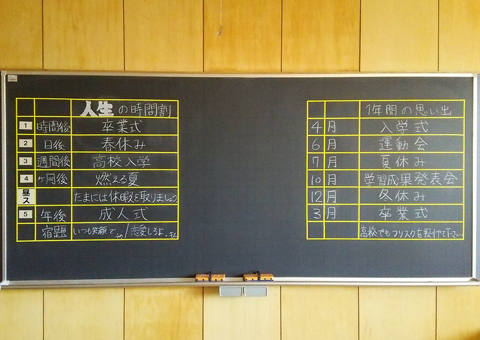 人生の時間割
1 時間後 卒業式
2 日後 春休み
3 週間後 高校入学
4 ヶ月後 燃える夏
たまには休暇を取りましょう
5 年後 成人式
宿題 いつも笑顔で
1年間の思い出
4月 入学式
6月 運動会
7月 夏休み
10月 学習成果発表会
12月 冬休み
3月 卒業式
高校でもフリスクを